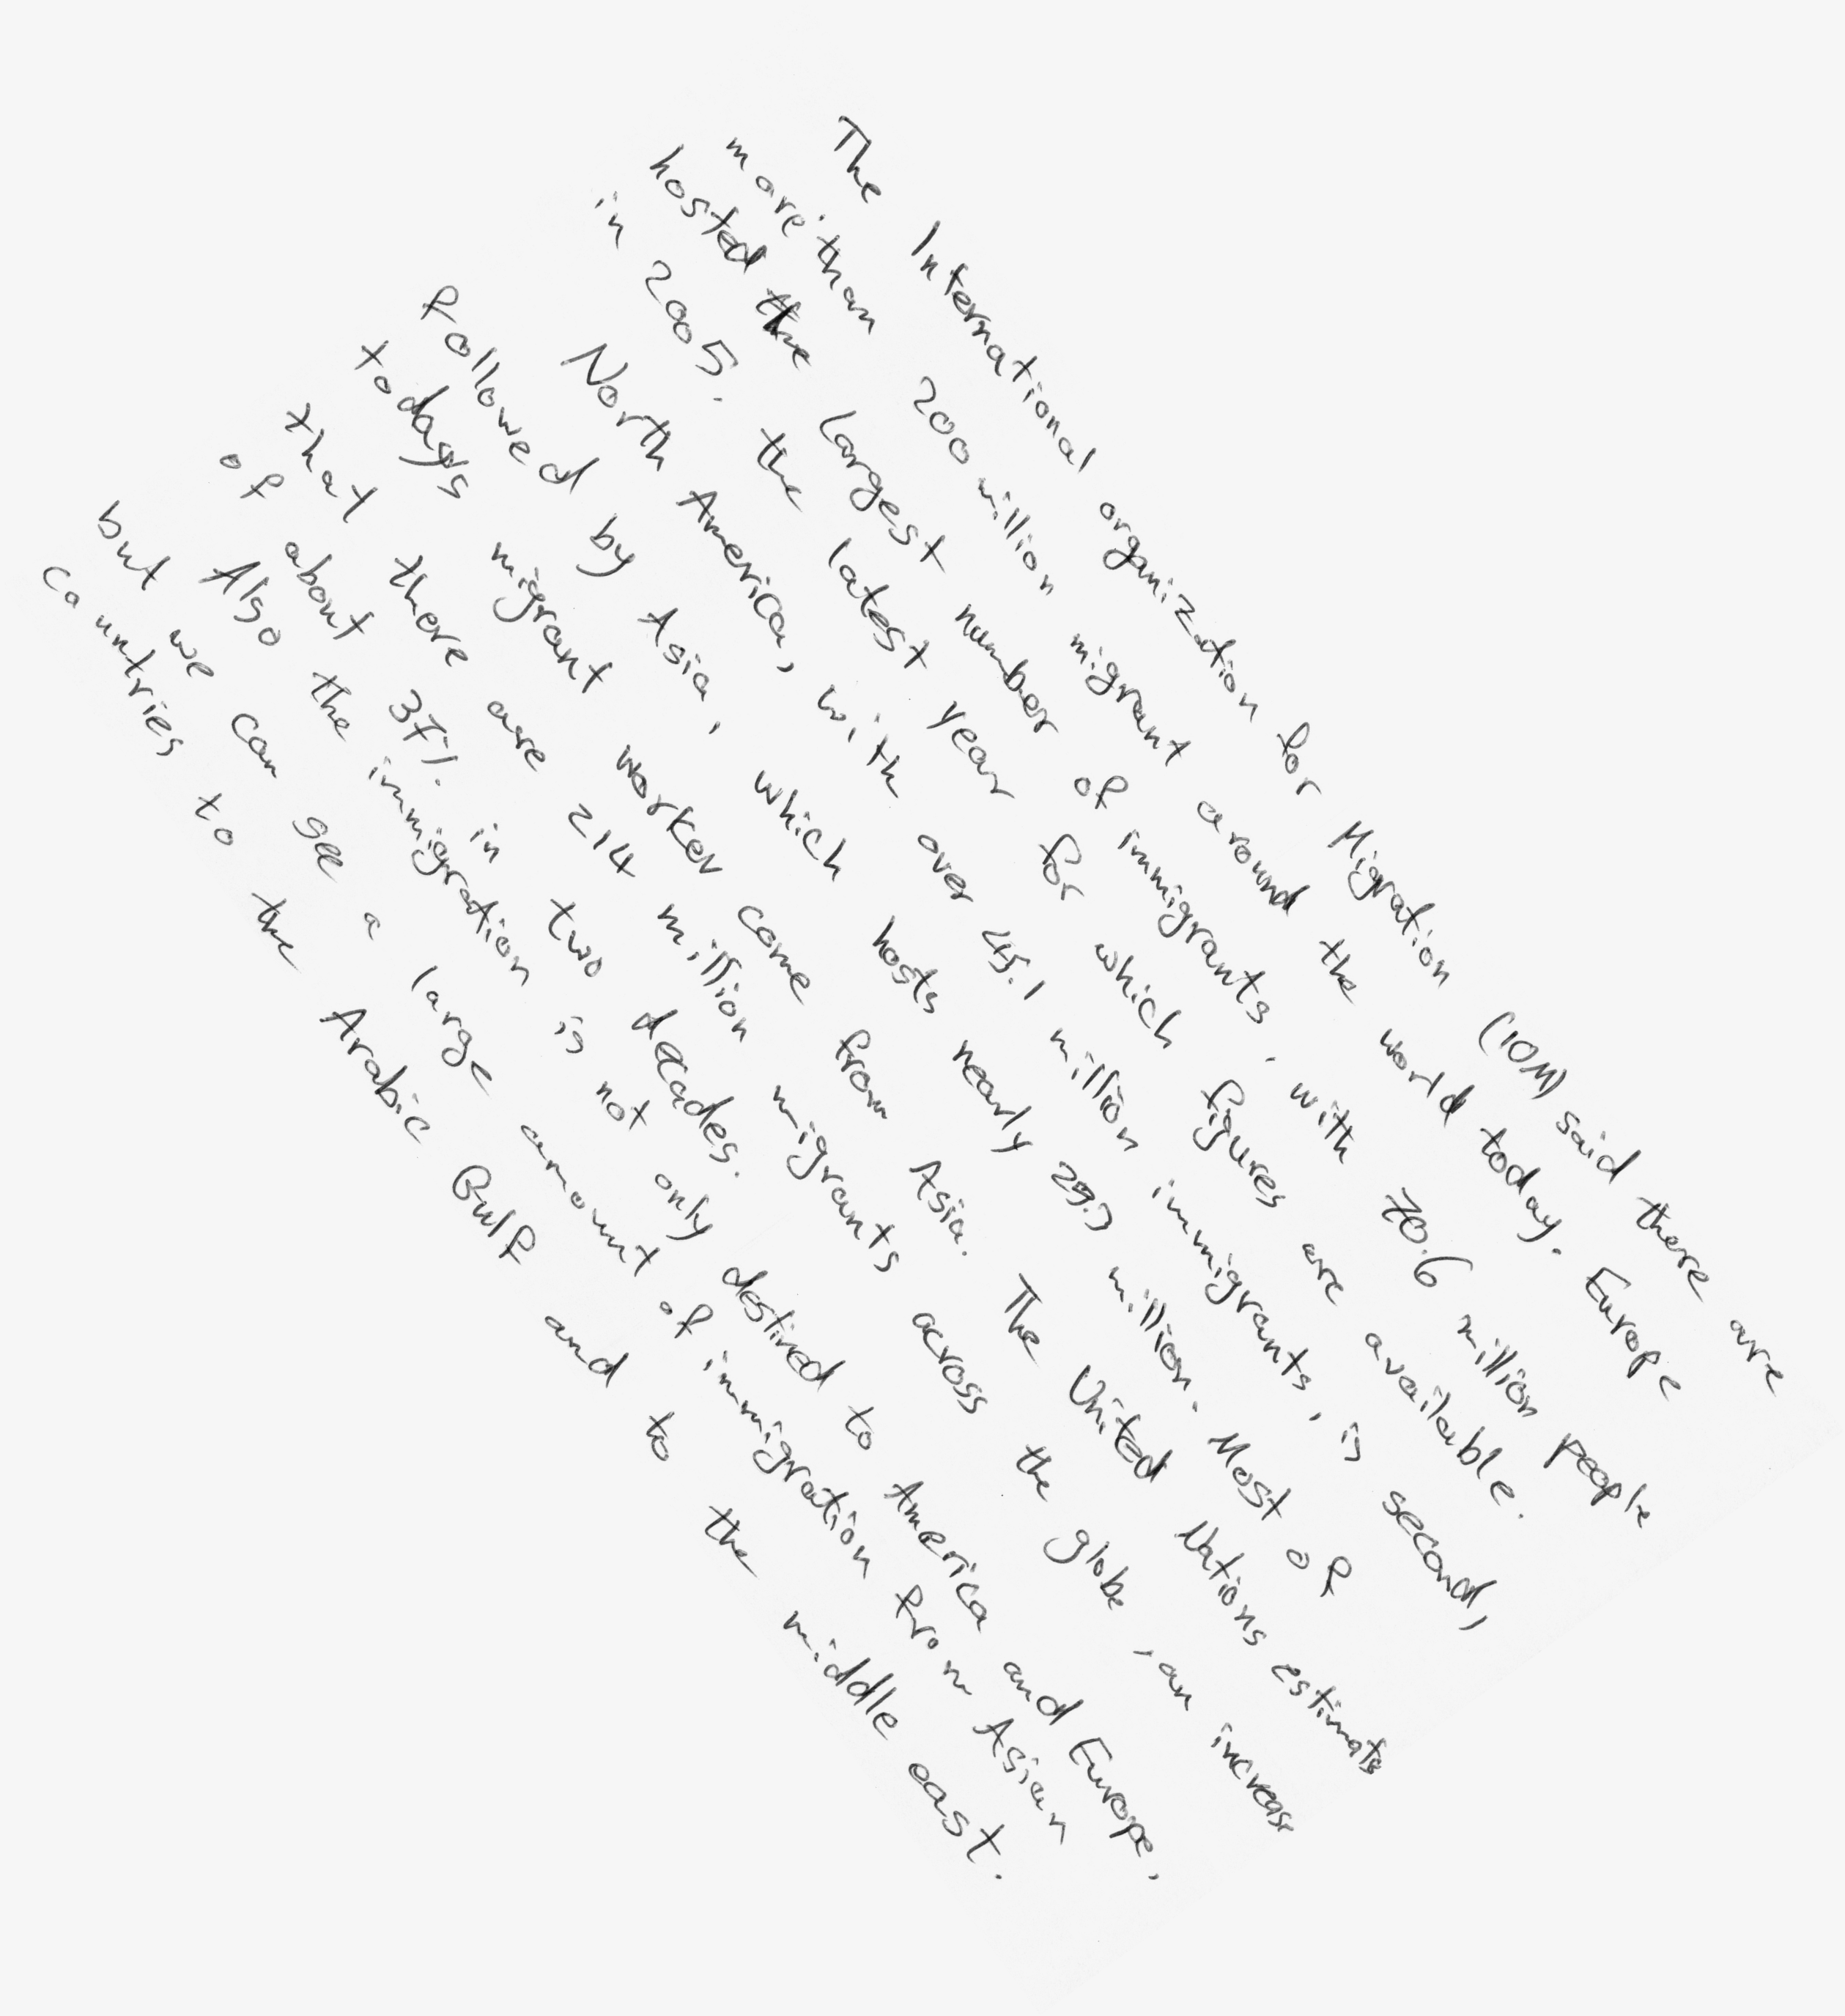 The International organization for Migration (IOM) said there are
more than 200 million migrant around the world today. Europe
hosted the largest number of immigrants, with 70.6 million people
in 2005, the latest year for which figures are available.
North America, with over 45.1 million immigrants, is second,
followed by Asia, which hosts nearly 25.3 million. Most of
todays migrant worker come from Asia. The United Nations estimats
that there are 214 million migrants across the globe, an increase
of about 37% in two decades.
Also the immigration is not only destined to America and Europe,
but we can see a large amount of immigration from Asian
countries to the Arabic Gulf and to the middle east.